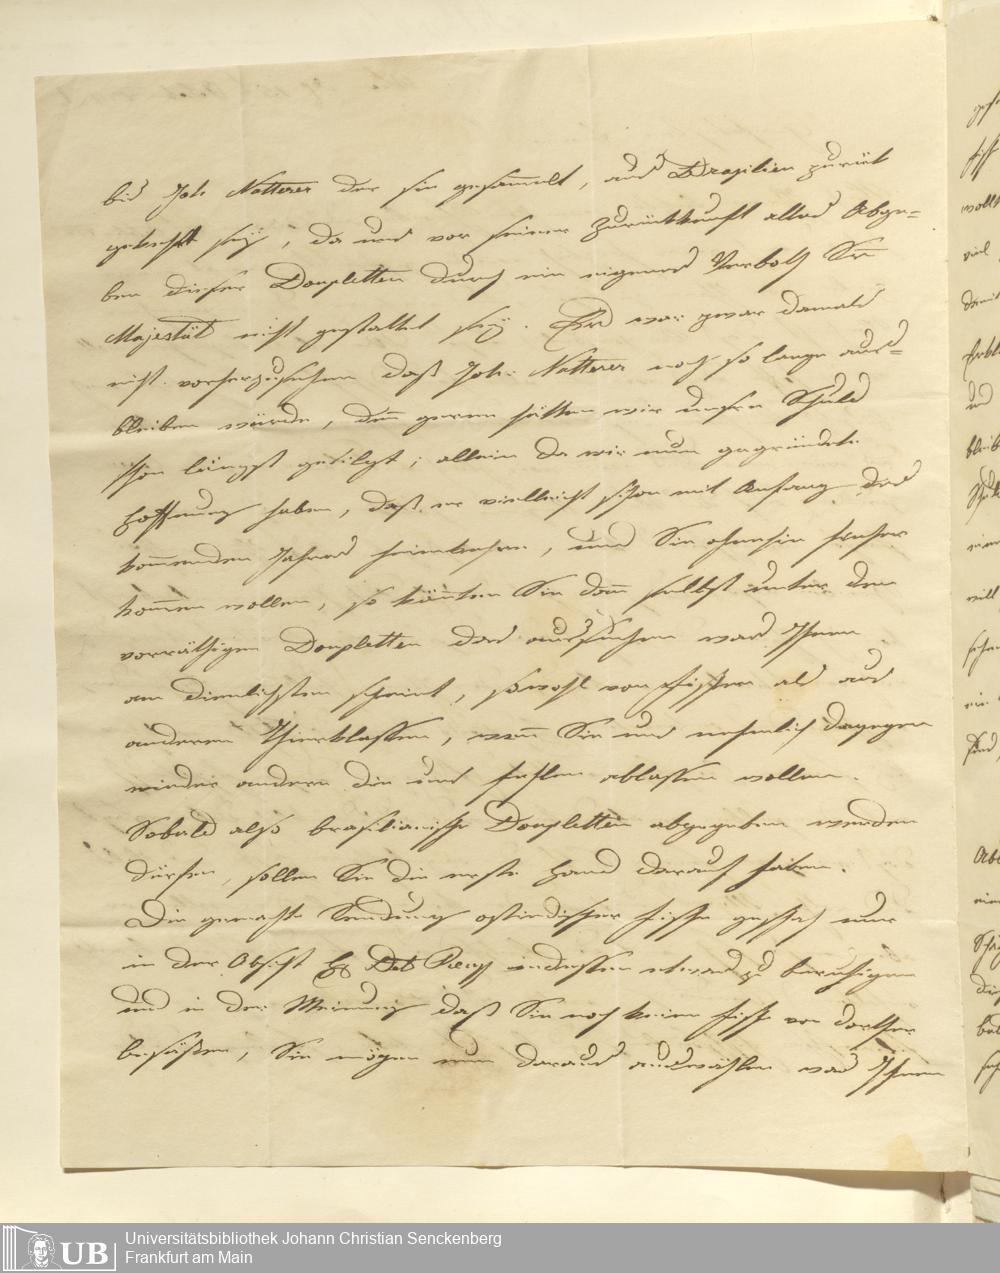 bis Joh. Natterer der sie gesam̅elt, aus Brasilien zurück
gekehrt sey, da uns vor seiner Zurückkunft alles Abge=
ben dieser Doupletten durch ein eigenes Verboth Sr
Majestät nicht gestattet sey. Es war zwar damals
nicht vorherzusehen daß Joh. Natterer noch so lange aus=
bleiben würde, den̅ gerne hätten wir unsre Schuld
schon längst getilgt; allein da wir nun gegründete
Hoffnung haben, daß er vielleicht schon mit Anfang des
kom̅enden Jahres heimkehre, und Sie ohnehin hieher
kom̅en wollen, so kön̅ten Sie dan̅ selbst unter den
vorräthigen Doupletten das aussuchen was Ihnen
am dienlichsten scheint, sowohl von Fischen als aus
anderen Thierklassen, wen̅ Sie uns nehmlich dagegen
wieder andere die uns fehlen ablassen wollen.
Sobald also brasilianische Doupletten abgegeben werden
dürfen, sollen Sie die erste Hand darauf haben.
Die gemachte Sendung ostindischer Fische geschah nur
in der Absicht indessen etwas zu beruhigen
und in der Meinung daß Sie noch keine Fische von dorther
besäßen, Sie mögen nun daraus auswählen was Ihnen
UB
Universitätsbibliothek Johann Christian Senckenberg
Frankfurt am Main